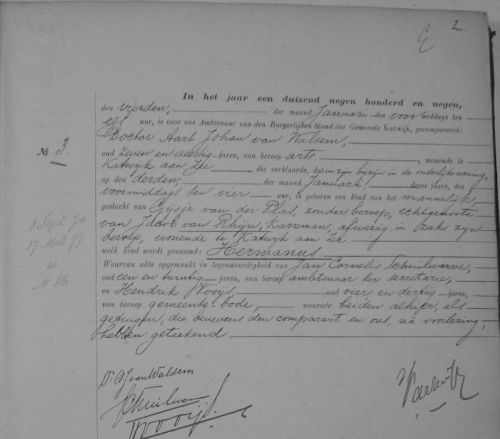 2
In het jaar een duizend negen honderd en negen,
den vierden, der maand Januari des voormiddags ten
elf uur, is voor ons Ambtenaar van den Burgerlijken Stand der Gemeente Katwijk, gecompareerd:
Doctor Aart Johan van Walsem,
No 3.
oud zeven en dertig jaren, van beroep arts, wonende te
Katwijk aan Zee die verklaarde, dat in zijn bijzijn in de onderlijke woning,
op den derden, der maand Januari, dezes jaars, des
voormiddags ten vier uur, is geboren een kind van het mannelijk
geslacht van Gijsje van der Plas, zonder beroep, echtgenoote
van Jacob van Rhijn, afwezig in zijn
beroep, wonende te Katwijk aan Zee
welk kind wordt genaamd: Hermanus
Waarvan akte opgemaakt in tegenwoordigheid van Jan Cornelis
oud een en jaren, van beroep ambtenaar ter secretarie,
en Hendrik Wooijs oud vier en dertig jaren,
van beroep gemeente-bode, wonende beiden alhier, als
getuigen, die benevens den comparant en ons, na voorlezing,
hebben geteekend.
Dr. AJ van Walsem